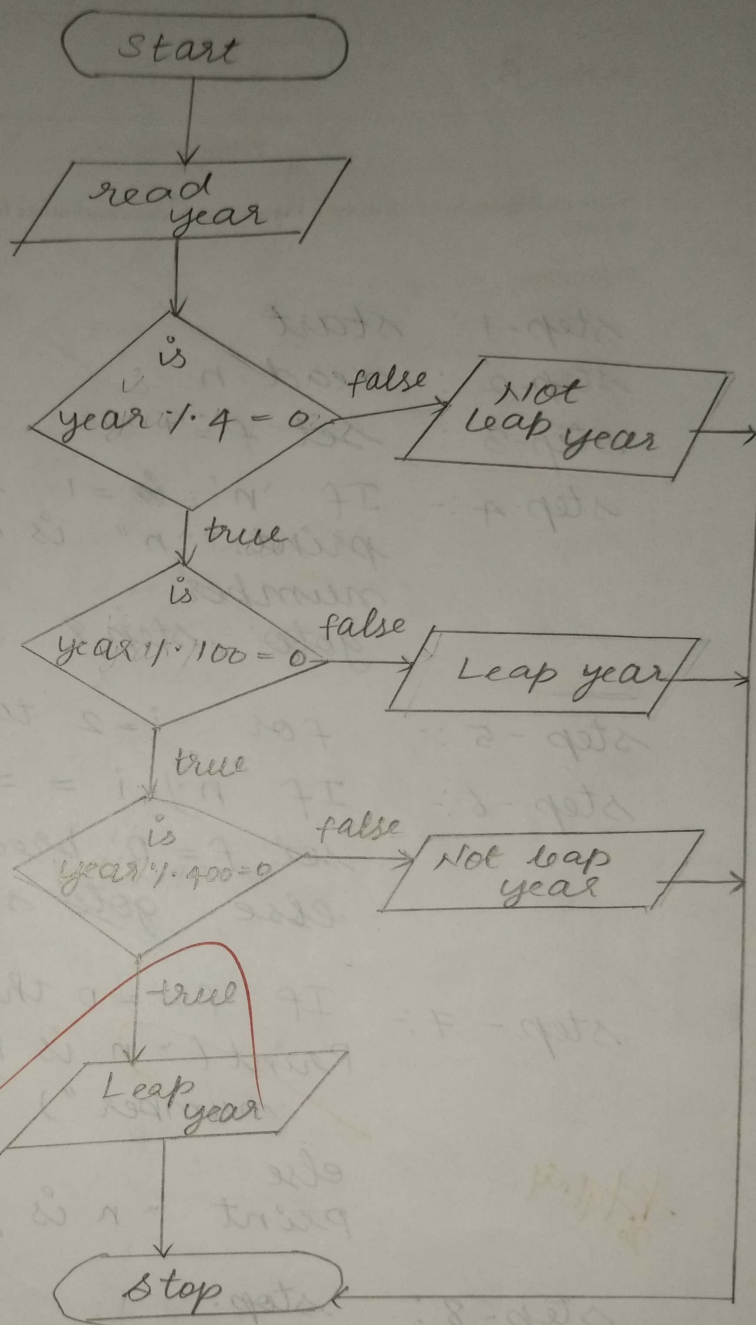 Start
read
year
is
year % 4 = 0
false
Not
Leap year
true
is
year % 100 = 0
false
Leap year
true
is
year % 400 = 0
false
Not leap
year
true
Leap
year
Stop